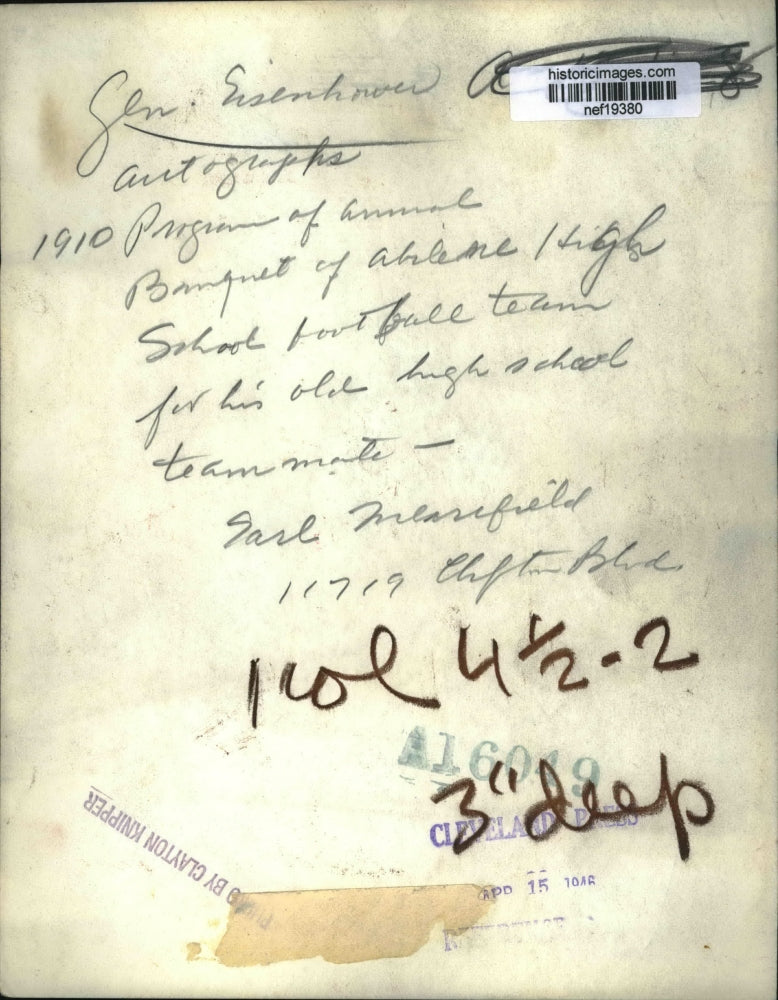 historicimages.com
nef19380
Gen. Eisenhower
autographs
1910 Program of annual
Banquet of Abilene High
School football team
for his old high school
team mate —
Earl
11719 Clifton Blvd.
1 col 4 1/2 - 2
A16049
3" deep
CLEVELAND PRESS
PHOTO BY CLAYTON KNIPPER
APR 15 1946
REFERENCE